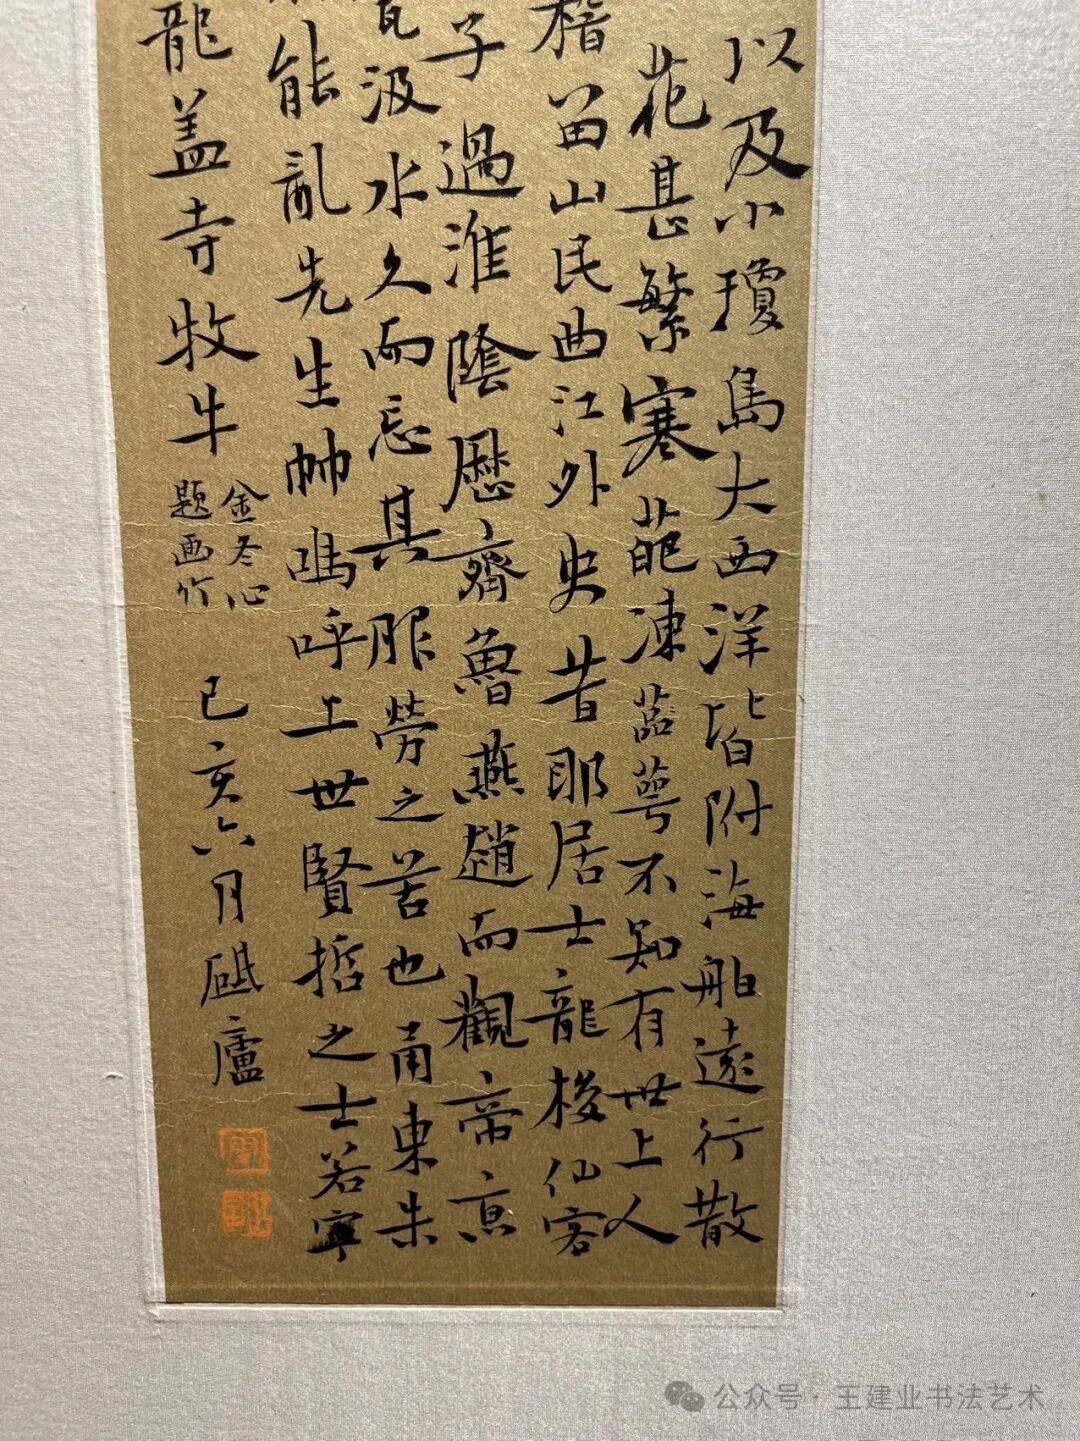 以及小瓊島大西洋皆附海舶遠行散
花甚繁寒葩凍蕊萼不知有世上人
稽留山民曲江外史昔耶居士龍梭仙客
子過淮陰歷齊魯燕趙而觀帝京
汲水久而忘其服勞之苦也甬東朱
能亂先生帥嗚呼上世賢哲之士若寧
龍蓋寺牧牛
金冬心
題畫竹
己亥六月砥廬
公众号·王建业书法艺术